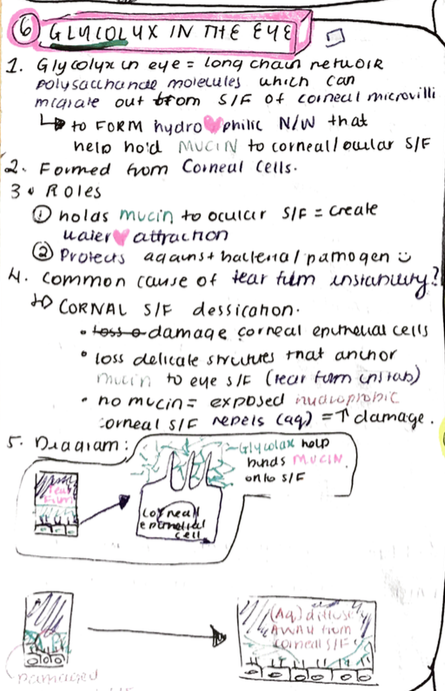 ⑥ GLYCOLYX IN THE EYE
1. Glycolyx in eye = long chain network
polysaccharide molecules which can
migrate out from S/F of corneal microvilli
↳ to FORM hydro♥philic N/W that
help hold MUCIN to corneal/ocular S/F
2. Formed from Corneal Cells.
3. Roles
① holds mucin to ocular S/F = create
water♥attraction
② Protects against bacterial/pathogen
4. Common cause of tear film instability?
↳ CORNAL S/F dessication.
• loss o damage corneal epithelial cells
• loss delicate strutures that anchor
mucin to eye S/F (tear form instab)
• no mucin = exposed hydrophobic
corneal S/F repels (aq) = ↑ damage.
5. Diagram:
Glycolax help
binds MUCIN
onto S/F
Tear
Film
Corneal
epithelial
cell
(Aq) diffuse
AWAY from
corneal S/F
Damaged